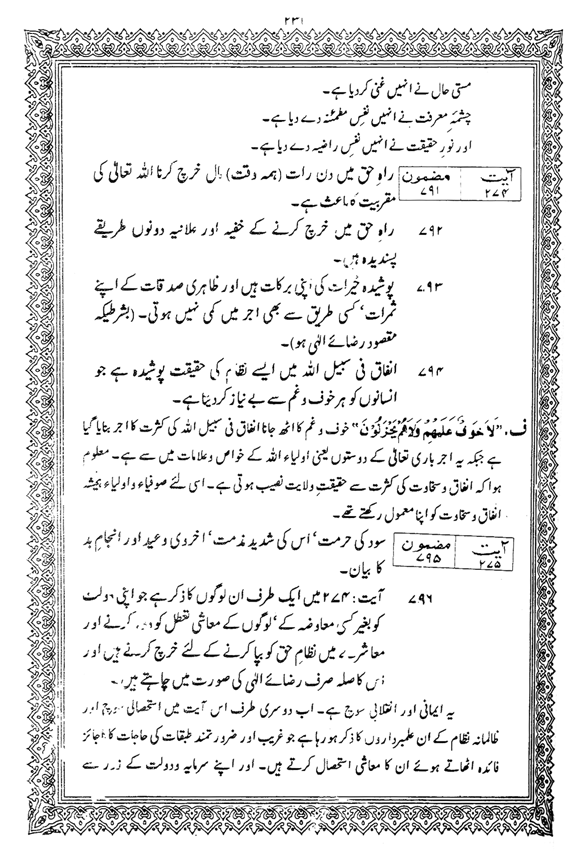 ۲۳۱
مستی حال نے انہیں غنی کر دیا ہے۔
چشمۂ معرفت نے انہیں نفس مطمئنہ دے دیا ہے۔
اور نورِ حقیقت نے انہیں نفس راضیہ دے دیا ہے۔
آیت ۲۷۴ مضمون ۷۹۱ راہِ حق میں دن رات (ہمہ وقت) مال خرچ کرنا اللہ تعالیٰ کی
مقربیت کا باعث ہے۔
۷۹۲ راہِ حق میں خرچ کرنے کے خفیہ اور علانیہ دونوں طریقے
پسندیدہ ہیں۔
۷۹۳ پوشیدہ خیرات کی اپنی برکات ہیں اور ظاہری صدقات کے اپنے
ثمرات‘ کسی طریق سے بھی اجر میں کمی نہیں ہوتی۔ (بشرطیکہ
مقصود رضائے الٰہی ہو)۔
۷۹۴ انفاق فی سبیل اللہ میں ایسے نظام کی حقیقت پوشیدہ ہے جو
انسانوں کو ہر خوف و غم سے بے نیاز کر دیتا ہے۔
ف۔ ”لَا خَوْفٌ عَلَيْهِمْ وَلَا هُمْ يَحْزَنُوْنَ“ خوف و غم کا اٹھ جانا انفاق فی سبیل اللہ کی کثرت کا اجر بتایا گیا
ہے جبکہ یہ اجر باری تعالیٰ کے دوستوں یعنی اولیاء اللہ کے خواص و علامات میں سے ہے۔ معلوم
ہوا کہ انفاق و سخاوت کی کثرت سے حقیقتِ ولایت نصیب ہوتی ہے۔ اسی لئے صوفیاء و اولیاء ہمیشہ
انفاق و سخاوت کو اپنا معمول رکھتے تھے۔
آیت ۲۷۵ مضمون ۷۹۵ سود کی حرمت‘ اس کی شدید مذمت‘ اخروی وعید اور انجامِ بد
کا بیان۔
۷۹۶ آیت: ۲۷۴ میں ایک طرف ان لوگوں کا ذکر ہے جو اپنی دولت
کو بغیر کسی معاوضہ کے‘ لوگوں کے معاشی تعطل کو دور کرنے اور
معاشرے میں نظامِ حق کو بپا کرنے کے لئے خرچ کرتے ہیں اور
اس کا صلہ صرف رضائے الٰہی کی صورت میں چاہتے ہیں۔
یہ ایمانی اور انقلابی سوچ ہے۔ اب دوسری طرف اس آیت میں استحصالی سوچ اور
ظالمانہ نظام کے ان علمبرداروں کا ذکر ہو رہا ہے جو غریب اور ضرورتمند طبقات کی حاجات کا ناجائز
فائدہ اٹھاتے ہوئے ان کا معاشی استحصال کرتے ہیں۔ اور اپنے سرمایہ و دولت کے زور سے